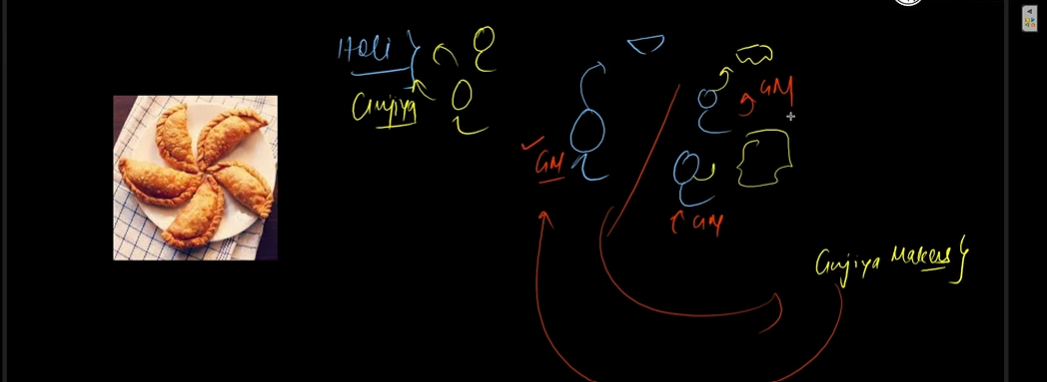 Holi
Gujiya
GM
GM
GM
Gujiya Makers